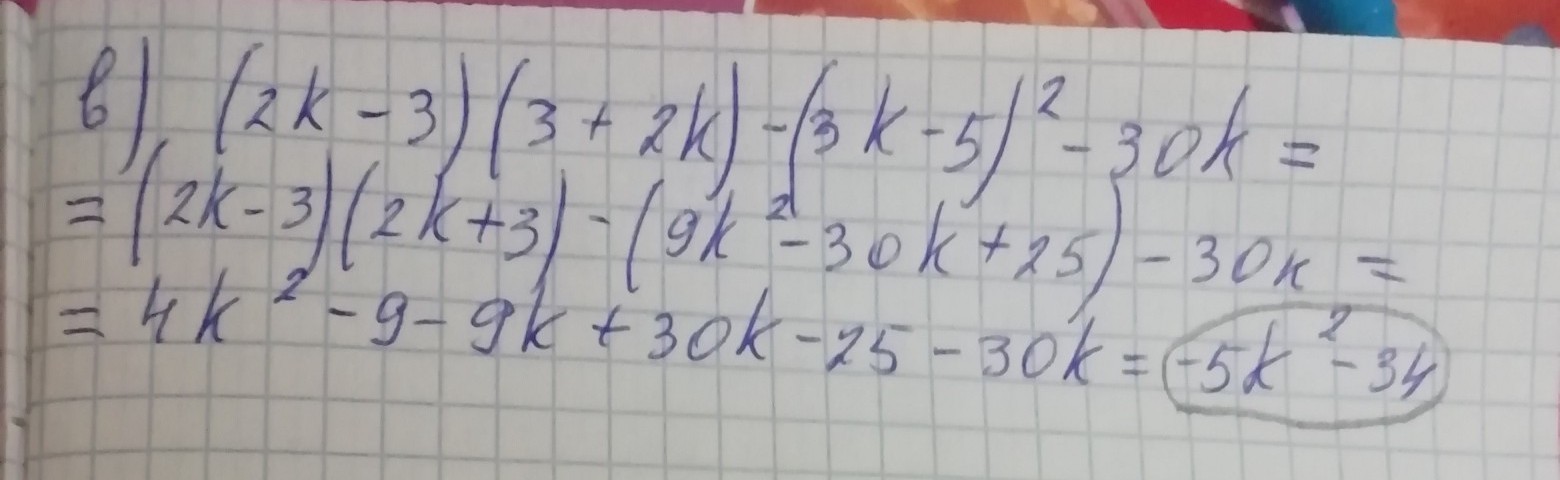 в) (2k - 3)(3 + 2k) - (3k - 5)² - 30k =
= (2k - 3)(2k + 3) - (9k² - 30k + 25) - 30k =
= 4k² - 9 - 9k + 30k - 25 - 30k = -5k² - 34